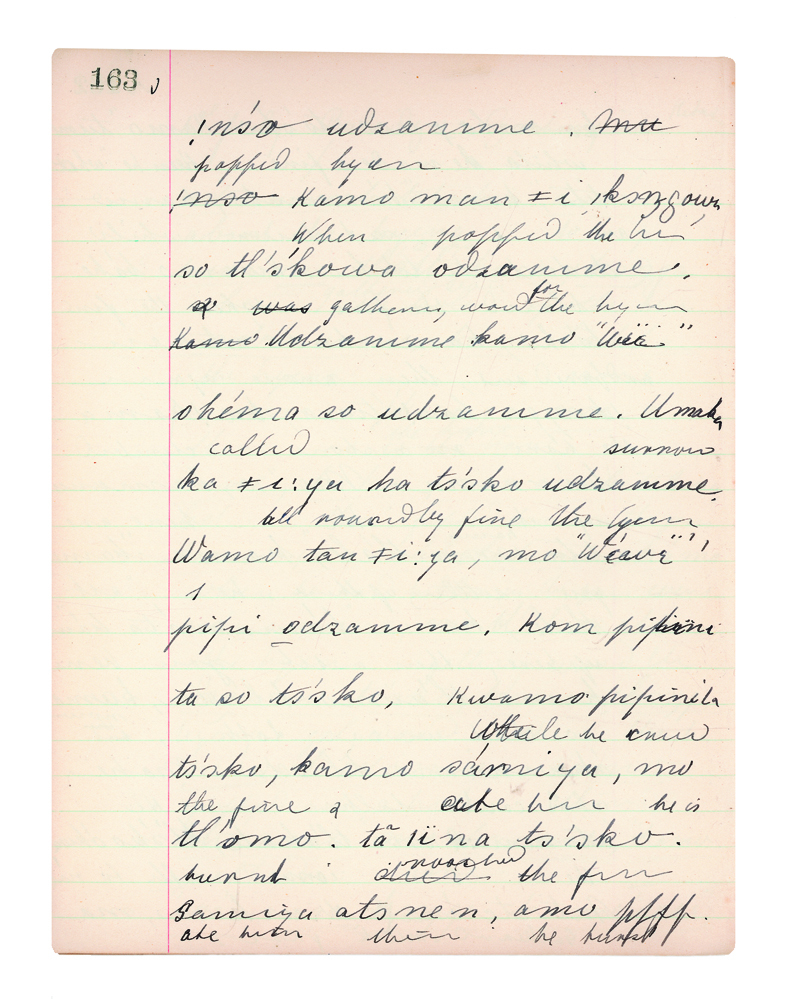 163
!nśo udzamme. mu
popped hyæn
!nśo Kamo man ≠i
When popped the
so tl'śkowa odzamme.
& was gathering, wood for the hyæn
Kamo Udzamme kamo "Wëë"
ohéma so udzamme. Umaka
called surroun
ka ≠i:ya ha tśsko udzamme.
all round by fire the hyæn
Wamo tan ≠i:ya, mo
1
pipi odzamme. Kom
ta so tśsko, Kwamo pipinita
While he cried
tśsko, kamo sámiya, mo
the fire & ate him he is
tl'omo. tã ïïna tśsko.
burnt the fire
Samiya atsnen, amo pfff.
ate him then he burst